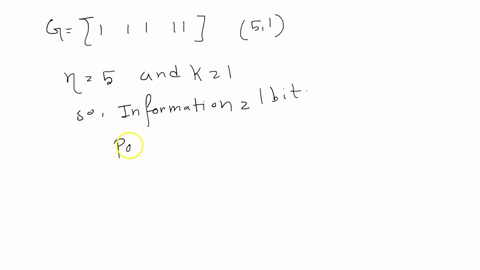 G = [1 1 1 1 1] (5,1)
n = 5 and k = 1
so, Information = 1 bit.
Po